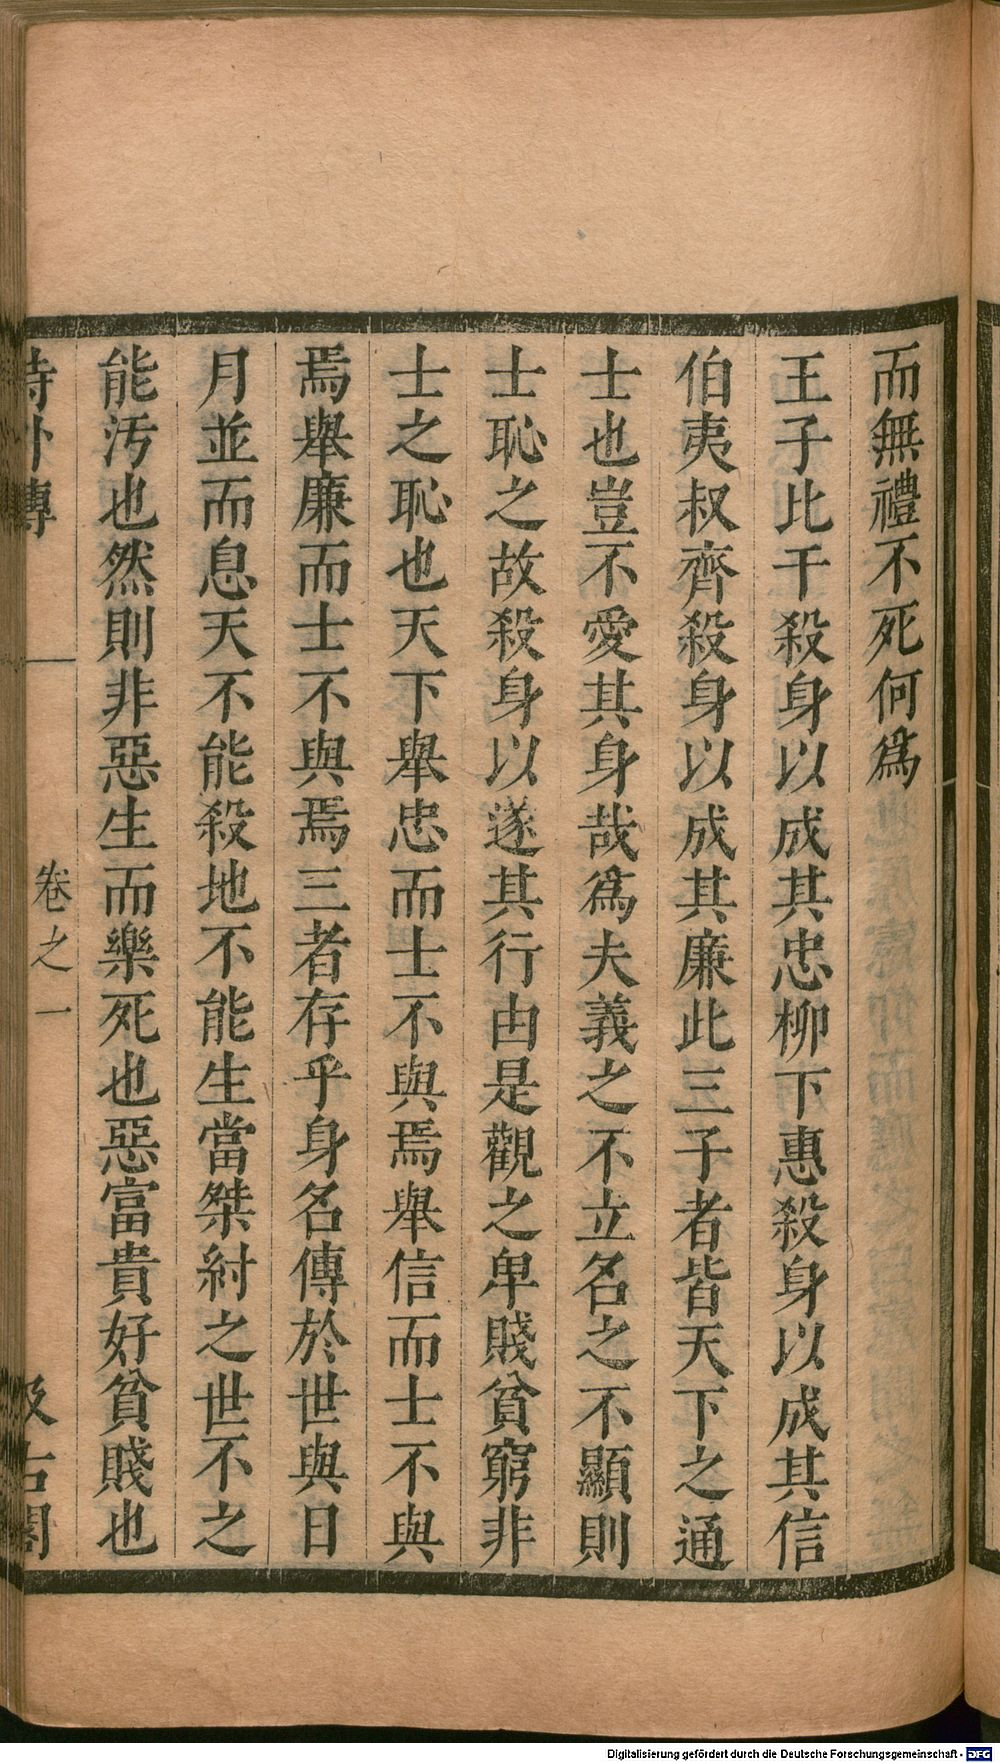 而無禮不死何爲
王子比干殺身以成其忠柳下惠殺身以成其信
伯夷叔齊殺身以成其廉此三子者皆天下之通
士也豈不愛其身哉爲夫義之不立名之不顯則
士恥之故殺身以遂其行由是觀之卑賤貧窮非
士之恥也天下舉忠而士不與焉舉信而士不與
焉舉廉而士不與焉三者存乎身名傳於世與日
月並而息天不能殺地不能生當桀紂之世不之
能汚也然則非惡生而樂死也惡富貴好貧賤也
詩外傳 卷之一 汲古閣
Digitalisierung gefördert durch die Deutsche Forschungsgemeinschaft - DFG